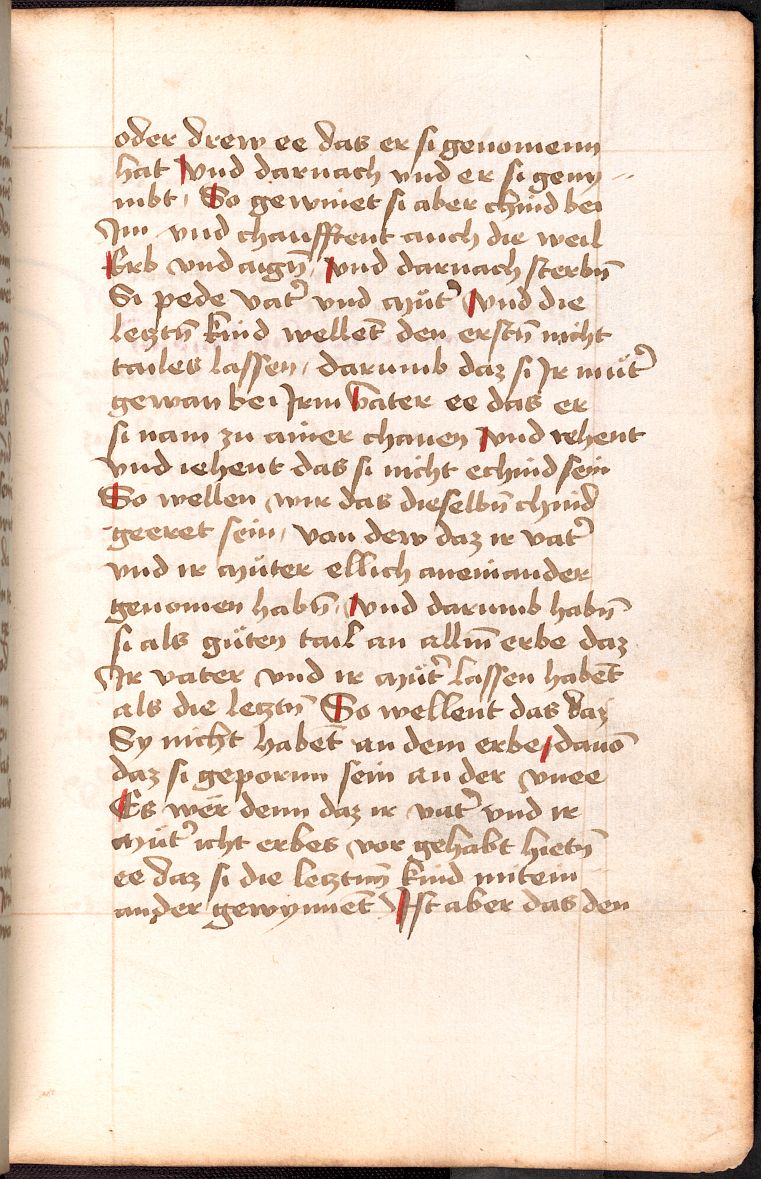 oder drew ee das er si genomenn
hat Vnd darnach vnd er si geny¬
mbt / So gewinet si aber chind bei
Im vnd chaufftent auch die weil
Erb vnd aign̄ / vnd darnach sterbn̄
Si pede vat̄ vnd müt̄ Vnd die
letztn̄ kind wellet̄ den erstn̄ nicht
tailes lassen / darumb daz si Ir müt̄
gewan bei Irm vater ee das er
si nam zu ainer chanen Vnd iehent
vnd iehent das si nicht echind sein
So wellen wir das dieselbn̄ chind
geeret sein / van dew daz ir vat̄
vnd ir müter ellich aneinander
genomen habn̄ / vnd darumb habn̄
si als güten tail an allm̄ erbe daz
Ir vater vnd ir müt̄ lassen habet̄
als die letztn̄ So wellent das daz
Sy nicht habet̄ an dem erbe / dauō
daz si gepornn sein an der vnee
Es wër denn daz ir vat̄ vnd ir
müt̄ icht erbes vor gehabt hietn̄
ee daz si die letztnn̄ kind mitein¬
ander gewynnet̄ Ist aber das den